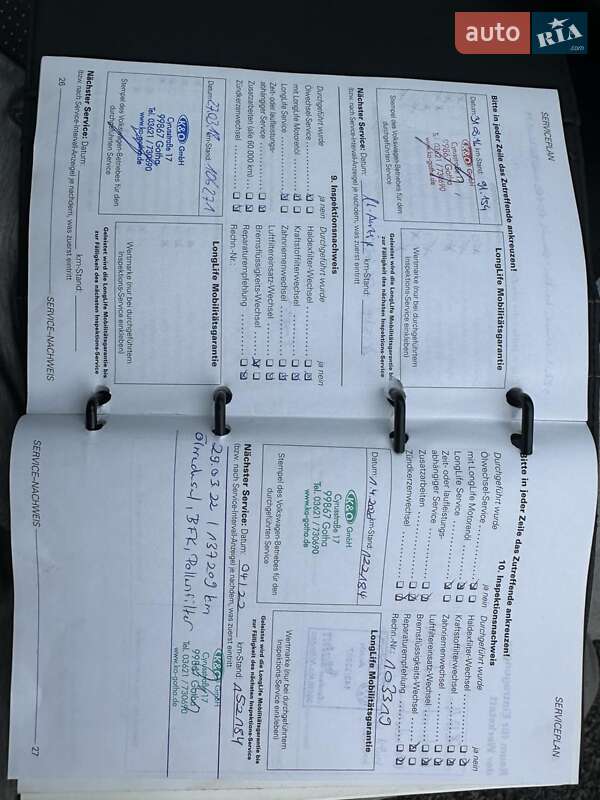 auto
RIA
.com
SERVICEPLAN
Bitte in jeder Zeile das Zutreffende ankreuzen!
Datum
km-Stand:
91 154
K&O GmbH
Cyrusstraße 17
99867 Gotha
Tel. 03621 / 730690
www.ko-gotha.de
Stempel des Volkswagen-Betriebes für den
durchgeführten Service
LongLife Mobilitätsgarantie
Wertmarke (nur bei durchgeführtem
Inspektions-Service einkleben)
Geleistet wird die LongLife Mobilitätsgarantie bis
zur Fälligkeit des nächsten Inspektions-Service
Nächster Service: Datum:
km-Stand:
(bzw. nach Service-Intervall-Anzeige) je nachdem, was zuerst eintritt
9. Inspektionsnachweis
Durchgeführt wurde ja nein
Ölwechsel-Service
mit LongLife Motorenöl
LongLife Service
Zeit- oder laufleistungs-
abhängiger Service
Zusatzarbeiten (alle 60.000 km)
Zündkerzenwechsel
Durchgeführt wurde ja nein
Haldexfilter-Wechsel
Kraftstofffilterwechsel
Zahnriemenwechsel
Luftfiltereinsatz-Wechsel
Bremsflüssigkeits-Wechsel
Reparaturempfehlung
Rechn.-Nr.:
Datum
km-Stand:
106171
K&O GmbH
Cyrusstraße 17
99867 Gotha
Tel. 03621 / 730690
www.ko-gotha.de
Stempel des Volkswagen-Betriebes für den
durchgeführten Service
LongLife Mobilitätsgarantie
Wertmarke (nur bei durchgeführtem
Inspektions-Service einkleben)
Geleistet wird die LongLife Mobilitätsgarantie bis
zur Fälligkeit des nächsten Inspektions-Service
Nächster Service: Datum:
km-Stand:
(bzw. nach Service-Intervall-Anzeige) je nachdem, was zuerst eintritt
26
SERVICE-NACHWEIS
SERVICEPLAN
Bitte in jeder Zeile das Zutreffende ankreuzen!
10. Inspektionsnachweis
Durchgeführt wurde ja nein
Ölwechsel-Service
mit LongLife Motorenöl
LongLife Service
Zeit- oder laufleistungs-
abhängiger Service
Zusatzarbeiten
Zündkerzenwechsel
Durchgeführt wurde ja nein
Haldexfilter-Wechsel
Kraftstofffilterwechsel
Zahnriemenwechsel
Luftfiltereinsatz-Wechsel
Bremsflüssigkeits-Wechsel
Reparaturempfehlung
Rechn.-Nr.: 103319
Datum 1.4.2021 km-Stand: 122184
K&O GmbH
Cyrusstraße 17
99867 Gotha
Tel. 03621 / 730690
www.ko-gotha.de
Stempel des Volkswagen-Betriebes für den
durchgeführten Service
LongLife Mobilitätsgarantie
Wertmarke (nur bei durchgeführtem
Inspektions-Service einkleben)
Geleistet wird die LongLife Mobilitätsgarantie bis
zur Fälligkeit des nächsten Inspektions-Service
Nächster Service: Datum: 04/22 km-Stand: 152184
(bzw. nach Service-Intervall-Anzeige) je nachdem, was zuerst eintritt
29.03.22 / 137209 km
Ölwechsel, BFK, Pollenfilter
K&O GmbH
Cyrusstraße 17
99867 Gotha
Tel. 03621 / 730690
www.ko-gotha.de
SERVICE-NACHWEIS
27